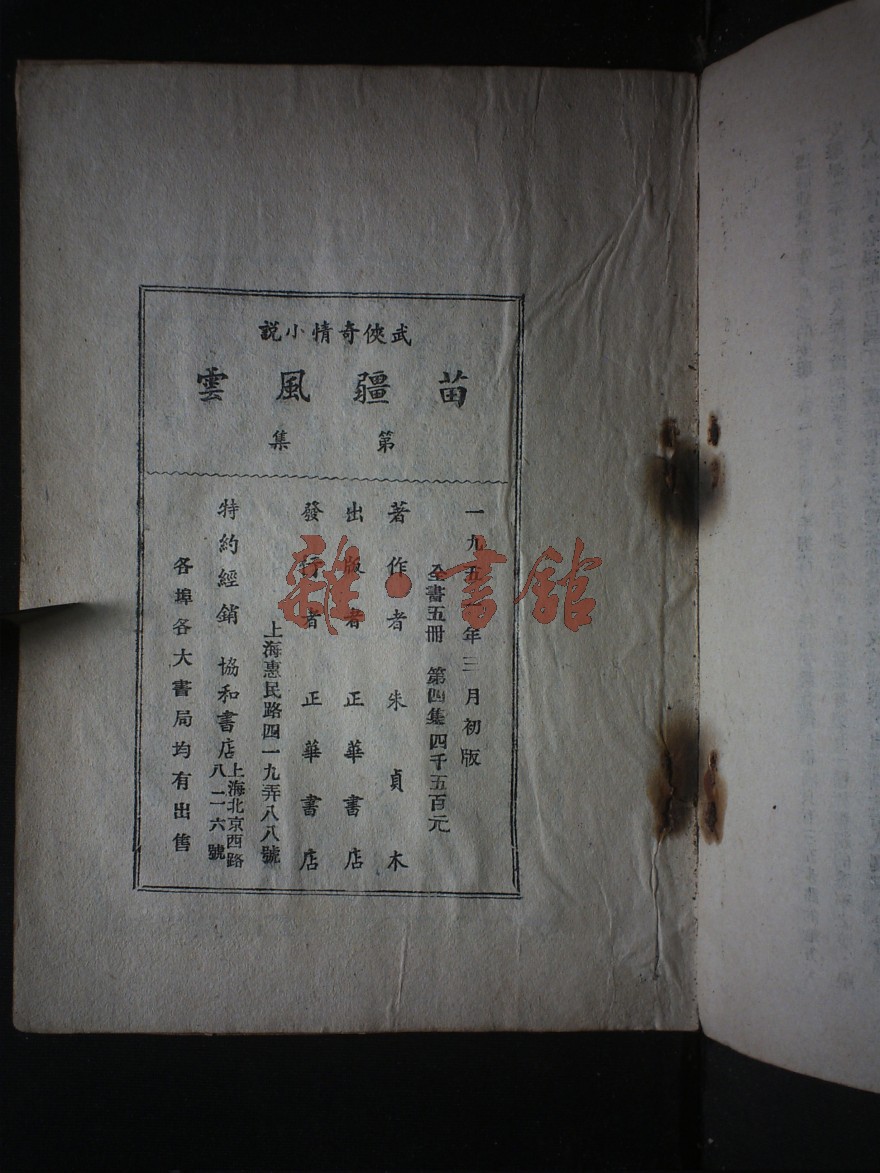 武俠奇情小説
苗疆風雲
第 集
一九五一年三月初版
全書五冊 第四集四千五百元
著作者 朱貞木
出版者 正華書店
發行者 正華書店
上海惠民路四一九弄八八號
特約經銷 協和書店 上海北京西路八二六號
各埠各大書局均有出售
雜·書館